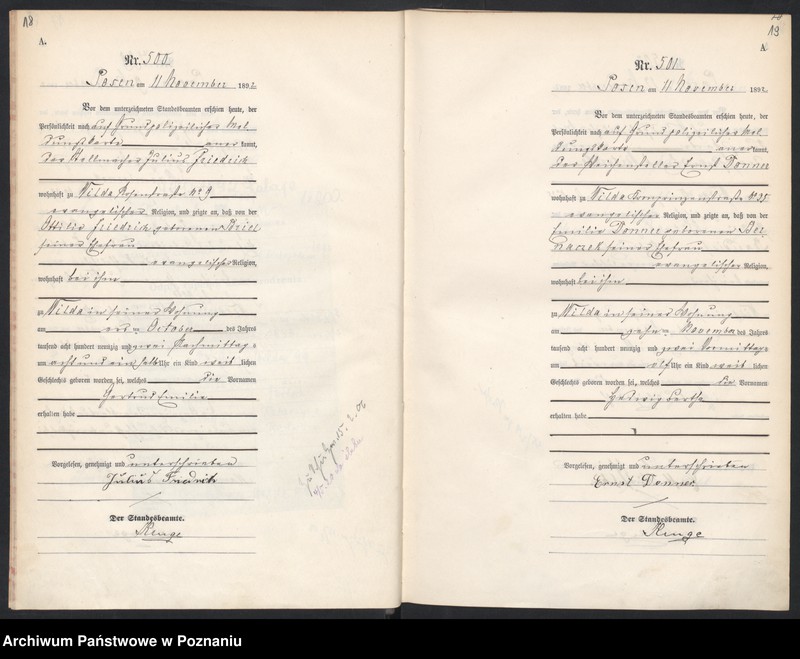 18
A.
Nr. 500
Posen am 11 November 1892.
Vor dem unterzeichneten Standesbeamten erschien heute, der
Persönlichkeit nach auf Grund polizeilicher Mel
dungskarte anerkannt,
der Stellmacher Julius Friedrich
wohnhaft zu Wilda Rosenstraße No 9
evangelischer Religion, und zeigte an, daß von der
Ottilie Friedrich geborenen
seiner Ehefrau
evangelischer Religion,
wohnhaft bei ihm
zu Wilda in seiner Wohnung
am October des Jahres
tausend acht hundert neunzig und zwei Nachmittags
um acht und ein halb Uhr ein Kind weib lichen
Geschlechts geboren worden sei, welches die Vornamen
Gertrud Emilie
erhalten habe
Vorgelesen, genehmigt und unterschrieben
Julius Friedrich
Der Standesbeamte.
Runge
19
A
Nr. 501
Posen am 11 November 1892.
Vor dem unterzeichneten Standesbeamten erschien heute, der
Persönlichkeit nach auf Grund polizeilicher Mel
dungskarte anerkannt,
der Weichensteller Ernst Donner
wohnhaft zu Wilda Kronprinzenstraße No
evangelischer Religion, und zeigte an, daß von der
Emilie Donner geborenen
seiner Ehefrau
evangelischer Religion,
wohnhaft bei ihm
zu Wilda in seiner Wohnung
am zehn ten November des Jahres
tausend acht hundert neunzig und zwei Vormittags
um elf Uhr ein Kind weib lichen
Geschlechts geboren worden sei, welches die Vornamen
Hedwig Bertha
erhalten habe
Vorgelesen, genehmigt und unterschrieben
Ernst Donner
Der Standesbeamte.
Runge
Archiwum Państwowe w Poznaniu